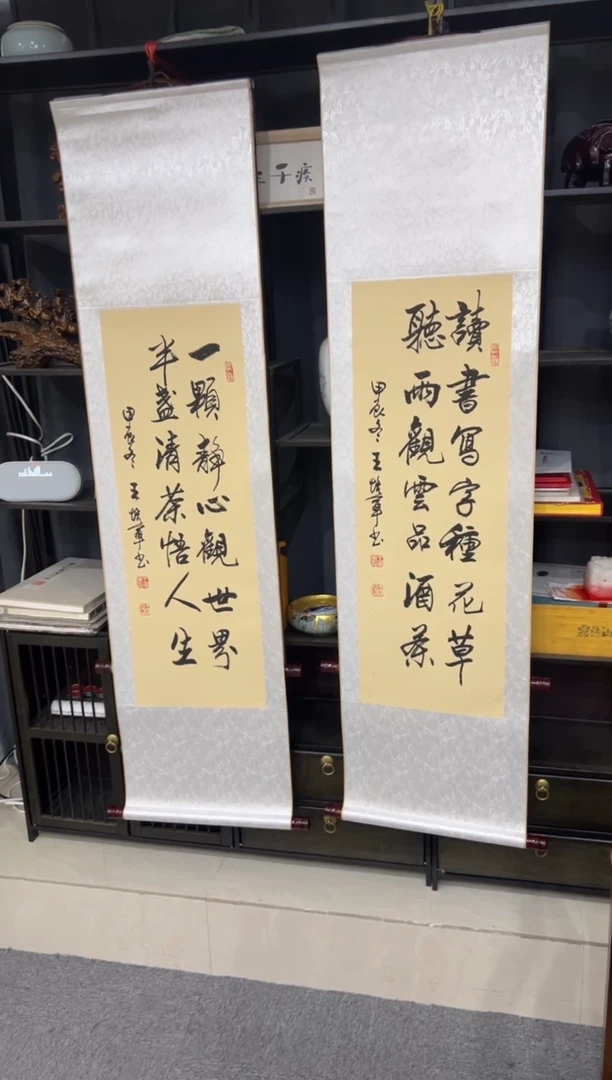 讀書寫字種花草
聽雨觀雲品酒茶
甲辰冬王培軍书
一顆靜心觀世界
半盞清茶悟人生
甲辰冬王培軍书